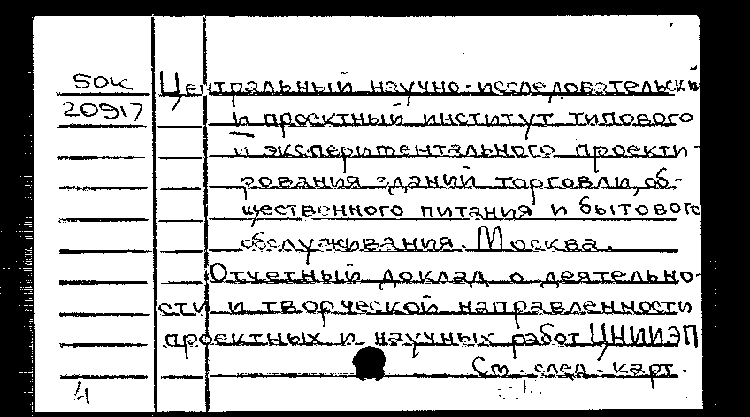 50к Центральный научно-исследовательский
20917 и проектный институт типового
и экспериментального проекти-
рования зданий торговли, об-
щественного питания и бытового
обслуживания. Москва.
Отчетный доклад о деятельно-
сти и творческой направленности
проектных и научных работ ЦНИИЭП
См. след. карт.
4